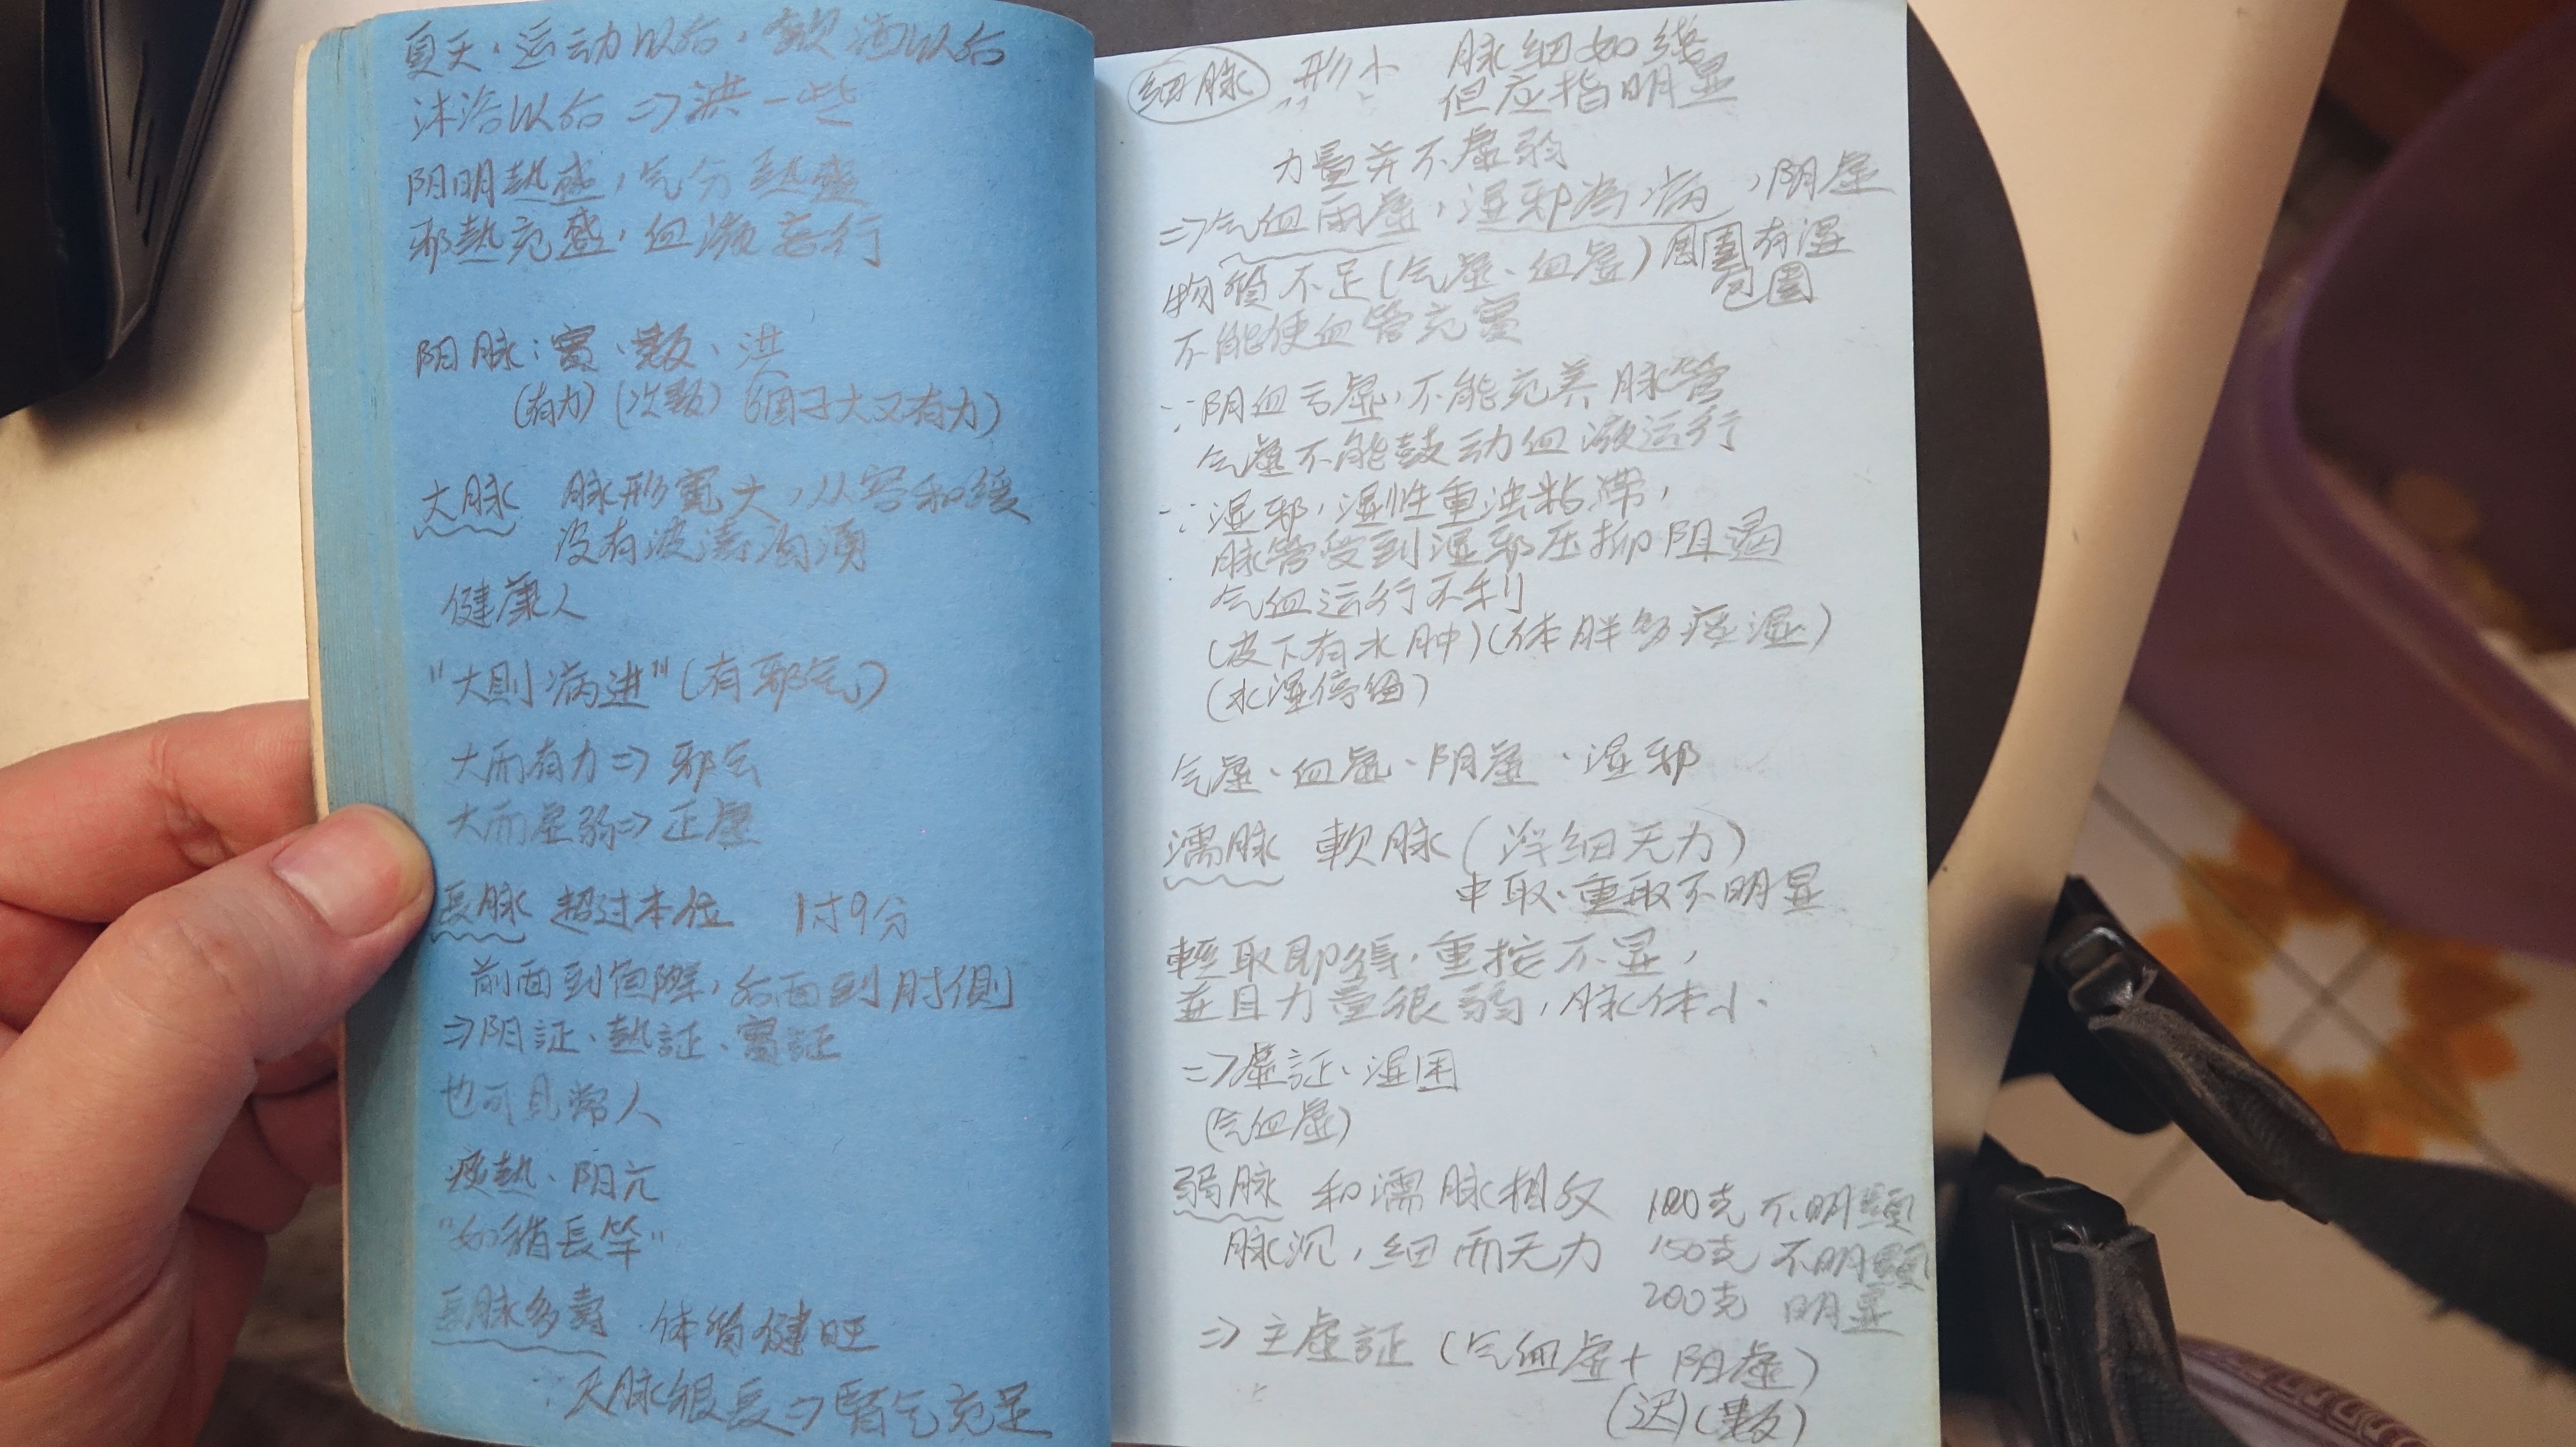 夏天，运动以后，飲酒以后
沐浴以后 ⇒ 洪一些
阳明熱盛，气分熱盛
邪熱充盛，血液妄行
阳脉：實、数、洪
(有力)(次数)(個子大又有力)
大脉 脉形寬大，从容和缓
没有波涛洶湧
健康人
"大則病进"(有邪气)
大而有力⇒邪气
大而虚弱⇒正虚
長脉 超过本位 1寸9分
前面到鱼際，后面到肘側
⇒阳証、熱証、實証
也可見常人
痰熱、阳亢
"如稍長竿"
長脉多壽 体質健旺
∵尺脉很長⇒腎气充足
細脉 形小 脉細如綫
但应指明显
力量并不虚弱
⇒气血兩虚，湿邪為病，阴虚
物質不足(气虚、血虚) 周圍有湿
包圍
不能使血管充實
∵阴血亏虚，不能充养脉管
气虚不能鼓动血液运行
∵湿邪，湿性重浊粘滞，
脉管受到湿邪压抑阻遏
气血运行不利
(皮下有水肿)(体胖多痰湿)
(水湿停留)
气虚、血虚、阴虚、湿邪
濡脉 軟脉(浮細无力)
中取、重取不明显
輕取即得，重按不显，
並且力量很弱，脉体小
⇒虚証、湿困
(气血虚)
弱脉 和濡脉相反 100克 不明顯
脉沉，細而无力 150克 不明顯
200克 明显
⇒主虚証 (气血虚+阴虚)
(迟)(数)